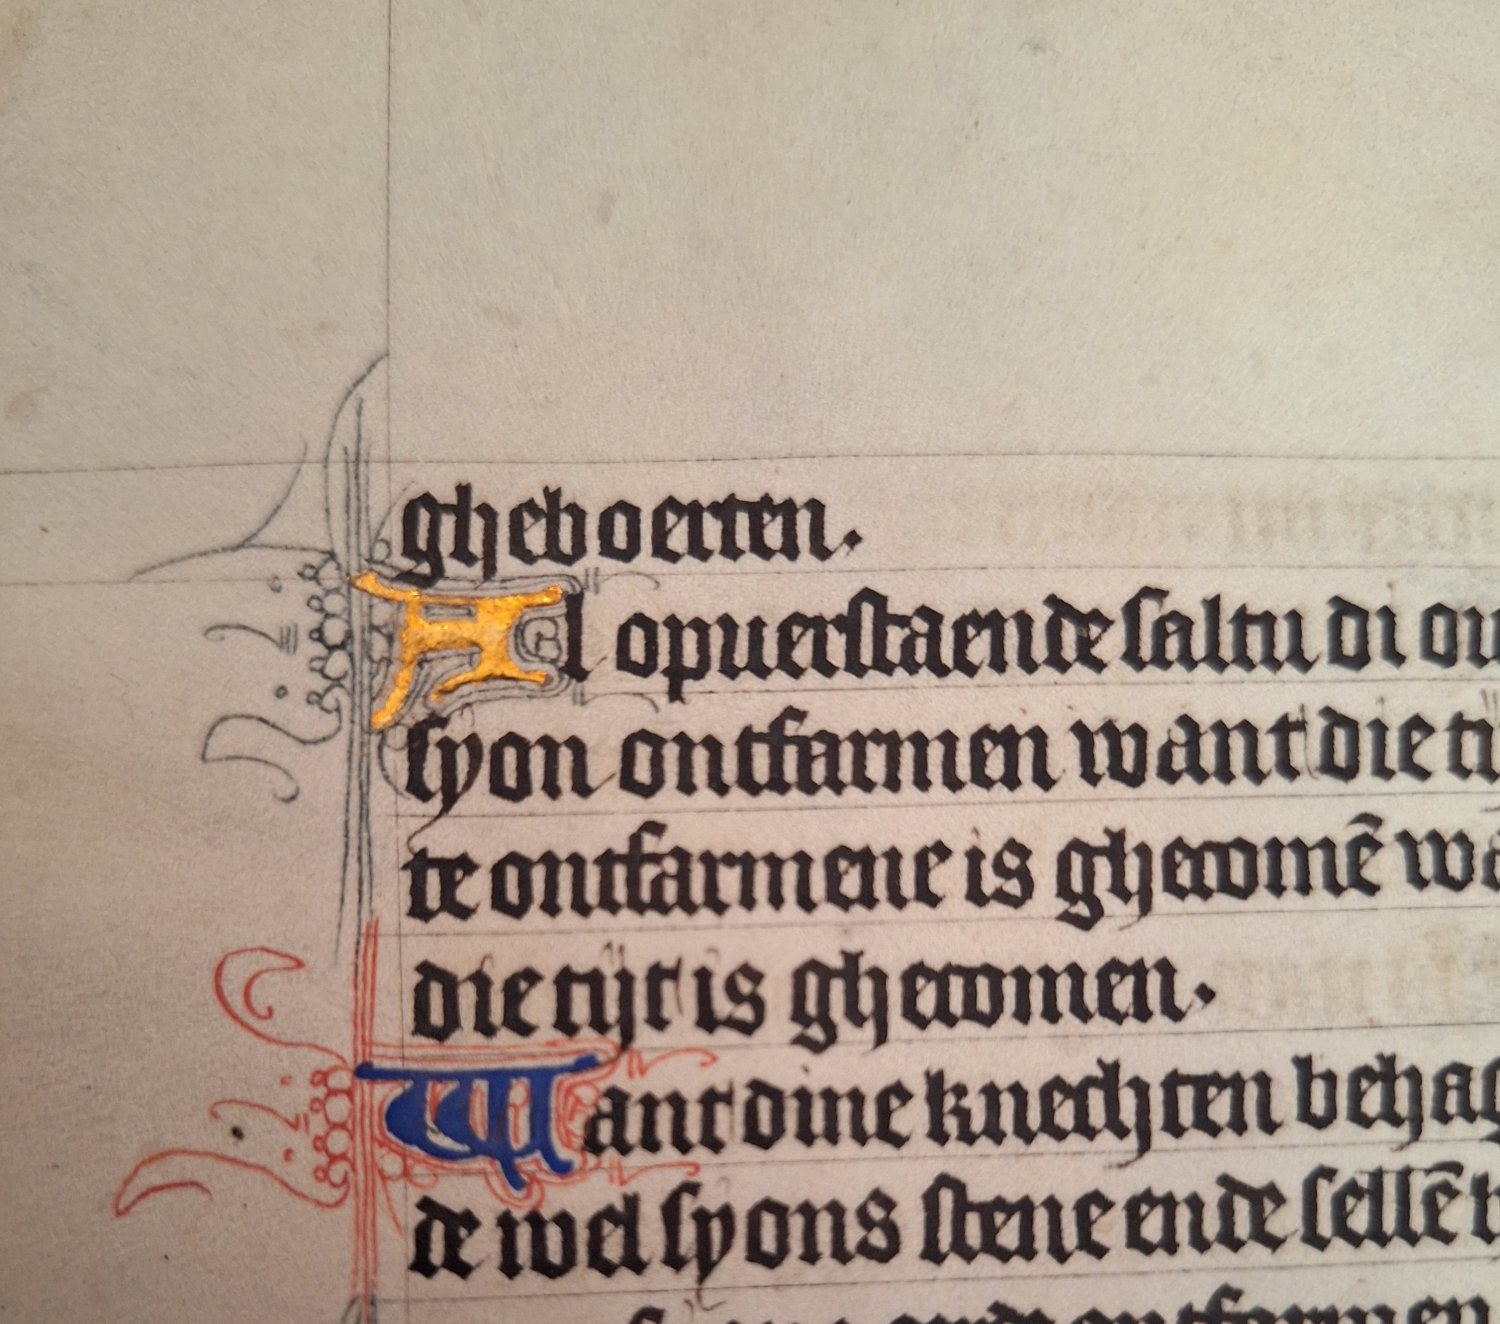 gheboerten.
Al opuerstaende saltu di ou
syon ontfarmen want die ti
te ontfarmene is ghecomē wa
die tijt is ghecomen.
Want dine knechten behag
de wel syons stene ende sellē
ontfarmen